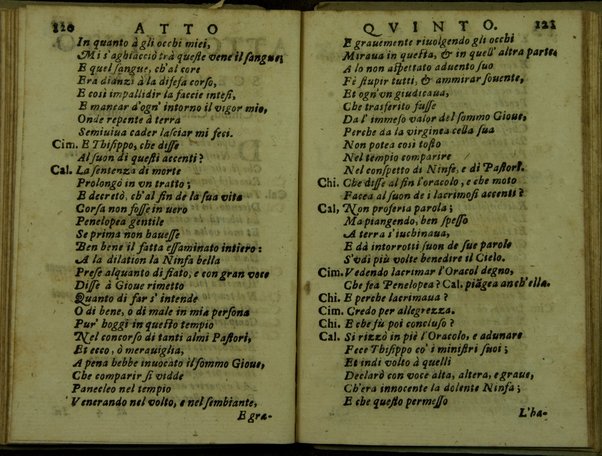 320 ATTO
In quanto à gli occhi miei,
Mi s'aghiacciò trà queste vene il sangue;
E quel sangue, ch'al core
Era dianzi à la difesa corso,
E così impallidir la faccie intesi,
E mancar d'ogn' intorno il vigor mio,
Onde repente à terra
Semiuiua cader lasciar mi feci.
Cim. E Thisippo, che disse
Al suon di questi accenti?
Cal. La sentenza di morte
Prolongò in vn tratto;
E decretò, ch'al fin de la sua vita
Corsa non fosse in vero
Penelopea gentile
Se prima non hauesse
Ben bene il fatto essaminato intiero:
A la dilation la Ninfa bella
Prese alquanto di fiato, e con gran voce
Disse à Gioue rimetto
Quanto di far s'intende
O di bene, o di male in mia persona
Pur' hoggi in questo tempio
Nel concorso di tanti almi Pastori,
Et ecco, ò merauiglia,
A pena hebbe inuocato il sommo Gioue,
Che comparir si vidde
Panecleo nel tempio
Venerando nel volto, e nel sembiante,
E gra-
QVINTO. 321
E grauemente riuolgendo gli occhi
Miraua in questa, & in quell' altra parte,
A lo non aspettato aduento suo
Fè stupir tutti, & ammirar souente,
Et ogn'vn giudicaua,
Che trasferito fusse
Da l' immẽso valor del sommo Gioue,
Perche da la virginea cella sua
Non potea così tosto
Nel tempio comparire
Nel conspetto di Ninfe, e di Pastori.
Chi. Che disse al fin l'oracolo, e che moto
Facea al suon de i lacrimosi accenti?
Cal, Non proferia parola;
Ma piangendo, ben spesso
A terra s'inchinaua,
E dà introtti suon de sue parole
S'vdì più volte benedire il Cielo.
Cim. Vedendo lacrimar l'Oracol degno,
Che fea Penelopea? Cal. piãgea anch'ella.
Chi. E perche lacrimaua?
Cim. Credo per allegrezza.
Chi. E che fù poi concluso?
Cal. Si rizzò in piè l'Oracolo, e adunare
Fece Thisippo co' i ministri suoi;
Et indi volto à quelli
Declarò con voce alta, altera, e graue,
Ch'era innocente la dolente Ninfa;
E che questo permesso
L'ha-